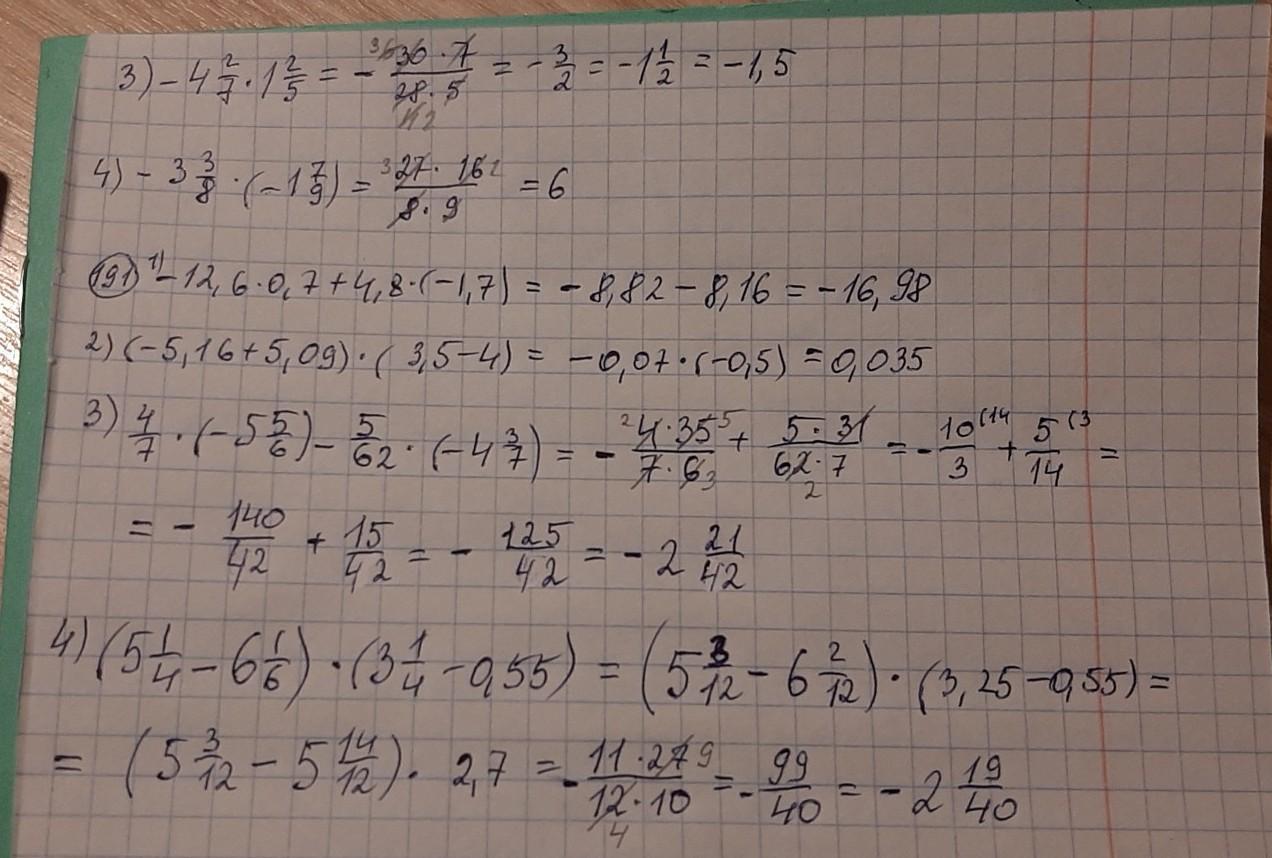 3) - 4 2/7 · 1 2/5 = - 30 · 7 / 28 · 5 = - 3/2 = - 1 1/2 = - 1,5
4) - 3 3/8 · (- 1 7/9) = 3 27 · 16 2 / 8 · 9 = 6
191 1) - 12,6 · 0,7 + 4,8 · (-1,7) = - 8,82 - 8,16 = - 16,98
2) (-5,16 + 5,09) · ( 3,5 - 4) = - 0,07 · (-0,5) = 0,035
3) 4/7 · (- 5 5/6) - 5/62 · (- 4 3/7) = - 2 4 · 35 5 / 7 · 6 3 + 5 · 31 / 62 · 7 2 = - 10/3 (14 + 5/14 (3 =
= - 140/42 + 15/42 = - 125/42 = - 2 21/42
4) (5 1/4 - 6 1/6) · (3 1/4 - 0,55) = (5 3/12 - 6 2/12) · (3,25 - 0,55) =
= (5 3/12 - 5 14/12) · 2,7 = - 11 · 27 9 / 12 · 10 4 = - 99/40 = - 2 19/40